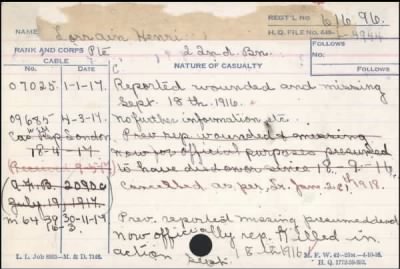 REGT'L No 61696.
H.Q. FILE No. 649-L-4944
NAME Lorrain Henri
RANK AND CORPS Pte 22nd. Bn. FOLLOWS
CABLE NATURE OF CASUALTY No. FOLLOWS
No. DATE
07025 1-1-17. Reported wounded and missing
Sept. 18th. 1916.
09685 4-3-17. no further information etc.
Cas Rep London Prev rep. wounded & missing
18-4-17 now for official purposes presumed
to have died on or since 18-9-16.
cancelled as per
July 19, 1917.
M 6439 30-11-17 Prev. reported missing presumed dead
16-3 now officially rep. Killed in
action Sept. 18th 1916
L. L. Job 8803.—M. & D. 7142. M. F. W. 42
H. Q. 1772-39-893.